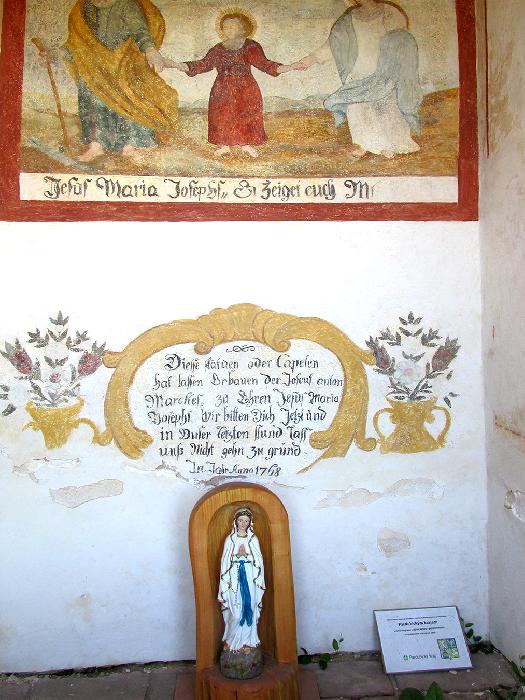 Jesus Maria Josephs, Er Zeiget euch
Diesse station oder Capelen
hat lassen Erbauen der Joseus anton
Marcher. zu Ehren Jesus Maria
Josephs. Wir bitten Dich Jetz und
in Unser letzten stund lass
unß Nicht gehn zu grund
In Jahr Anno 1768
Pardubický kraj